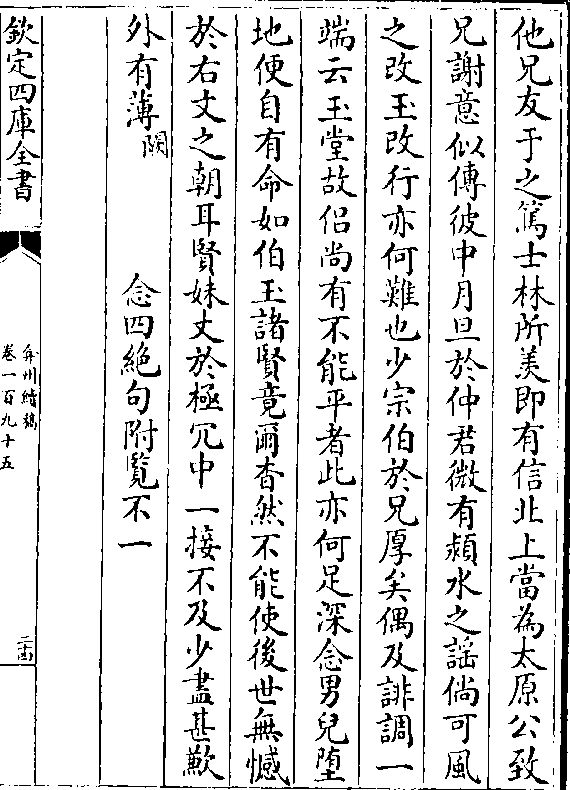 他兄友于之篤士林所羨即有信北上當為太原公致
兄謝意似傳彼中月旦於仲君微有潁水之謡倘可風
之改玉改行亦何難也少宗伯於兄厚矣偶及誹調一
端云玉堂故侣尚有不能平者此亦何足深念男兒堕
地便自有命如伯玉諸賢竟爾杳然不能使後世無憾
於右文之朝耳賢妹丈於極冗中一接不及少盡甚歉
外有薄闕　　念四絶句附覧不一
欽定四庫全書
弇州續稿
卷一百九十五
二十四